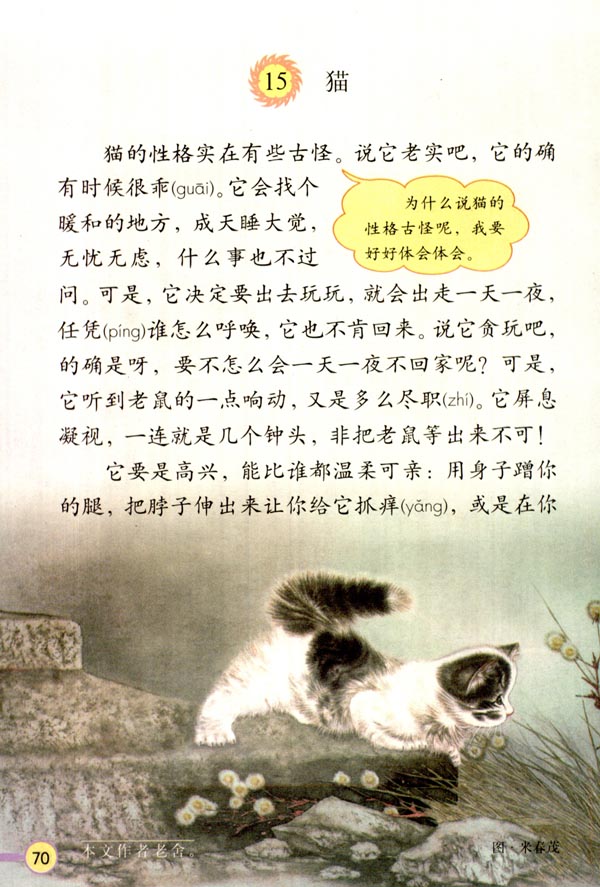 15 猫
猫的性格实在有些古怪。说它老实吧，它的确
有时候很乖(guāi)。它会找个
暖和的地方，成天睡大觉，
无忧无虑，什么事也不过
为什么说猫的
性格古怪呢，我要
好好体会体会。
问。可是，它决定要出去玩玩，就会出走一天一夜，
任凭(píng)谁怎么呼唤，它也不肯回来。说它贪玩吧，
的确是呀，要不怎么会一天一夜不回家呢？可是，
它听到老鼠的一点响动，又是多么尽职(zhí)。它屏息
凝视，一连就是几个钟头，非把老鼠等出来不可！
它要是高兴，能比谁都温柔可亲：用身子蹭你
的腿，把脖子伸出来让你给它抓痒(yǎng)，或是在你
70 本文作者老舍。
图·米春茂